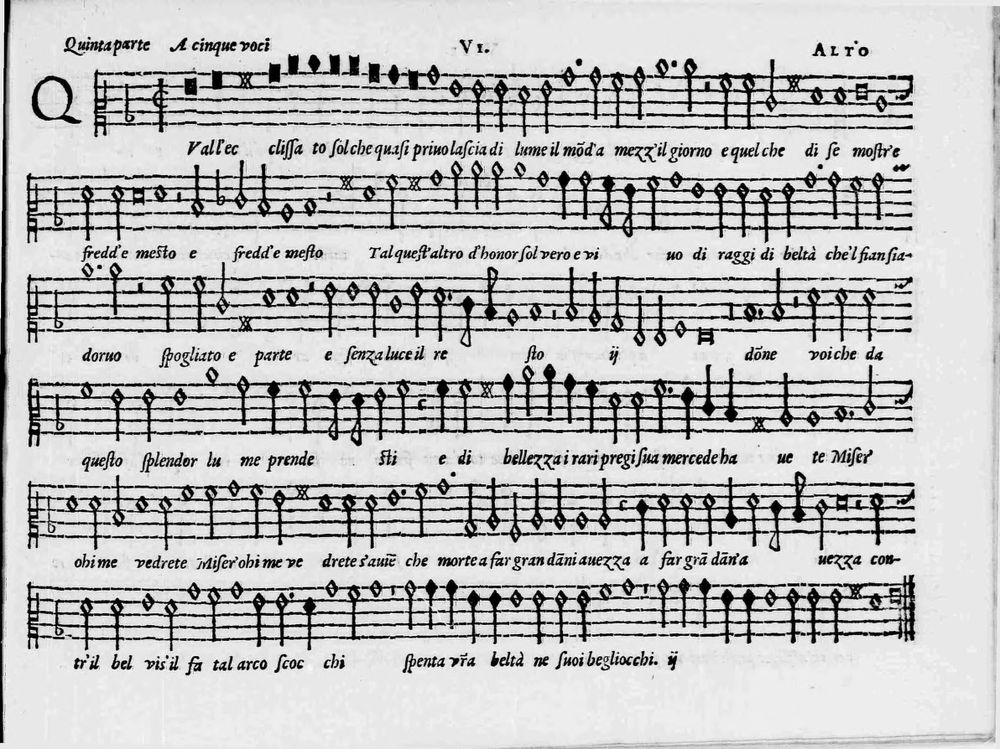 Quinta parte A cinque voci VI. ALTO
Q
Vall'ec clissa to sol che quasi priuo lascia di lume il mōd'a mezz'il giorno e quel che di se mostr'e
fredd'e mesto e fredd'e mesto Tal quest'altro d'honor sol vero e vi uo di raggi di beltà che'l fian sia-
doruo spogliato e parte e senza luce il re sto ij dōne voi che da
questo splendor lu me prende sti e di bellezza i rari pregi sua mercede ha ue te Miser'
ohime vedrete Miser'ohi me ve drete s'auiē che morte a far gran dāni auezza a far grā dān'a uezza con-
tr'il bel vis'il fa tal arco scoc chi spenta vr̃a beltà ne suoi begliocchi. ij